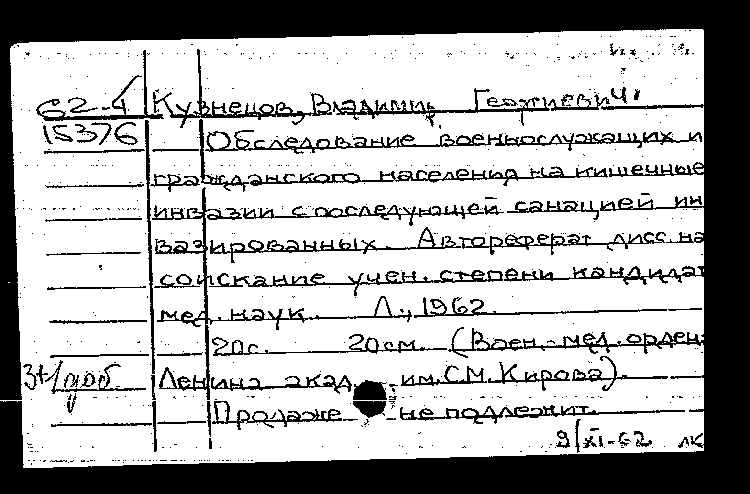 62-4 Кузнецов, Владимир Георгиевич.
15376 Обследование военнослужащих и
гражданского населения на кишечные
инвазии с последующей санацией ин
вазированных. Автореферат дисс. на
соискание учен. степени кандидат
мед. наук. Л., 1962.
20с. 20см. (Воен.-мед. ордена
3+1доб. Ленина акад. им. С.М. Кирова).
Продаже не подлежит.
9/XI-62 ЛК